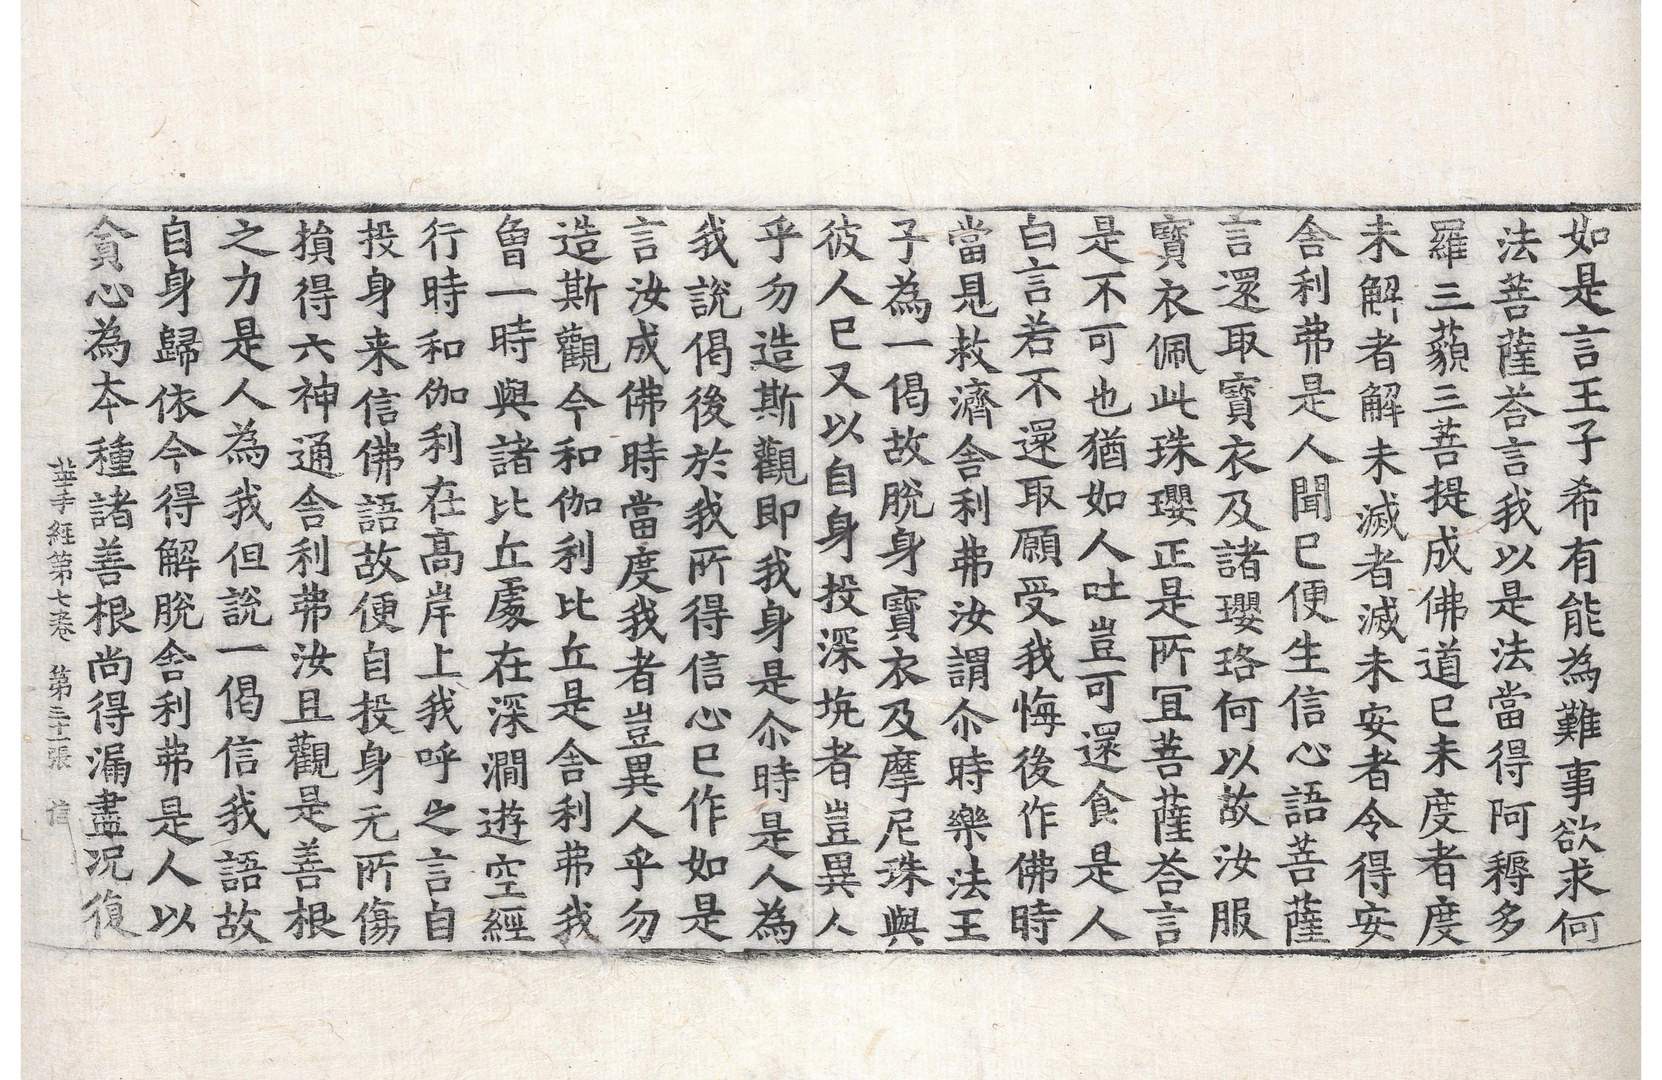 如是言王子希有能為難事欲求何
法菩薩荅言我以是法當得阿耨多
羅三藐三菩提成佛道已未度者度
未解者解未滅者滅未安者令得安
舎利弗是人聞已便生信心語菩薩
言還取寶衣及諸瓔珞何以故汝服
寶衣佩此珠瓔正是所冝菩薩荅言
是不可也猶如人吐豈可還食是人
白言若不還取願受我悔後作佛時
當見救濟舎利弗汝謂尒時樂法王
子為一偈故脫身寶衣及摩尼珠與
彼人已又以自身投深坑者豈異人
乎勿造斯觀即我身是尒時是人為
我說偈後於我所得信心已作如是
言汝成佛時當度我者豈異人乎勿
造斯觀今和伽利比丘是舎利弗我
曾一時與諸比丘處在深澗遊空經
行時和伽利在高岸上我呼之言自
投身来信佛語故便自投身无所傷
損得六神通舎利弗汝且觀是善根
之力是人為我但說一偈信我語故
自身歸依今得解脫舎利弗是人以
貪心為夲種諸善根尚得漏盡況復
華手經第七卷 第二十張 信